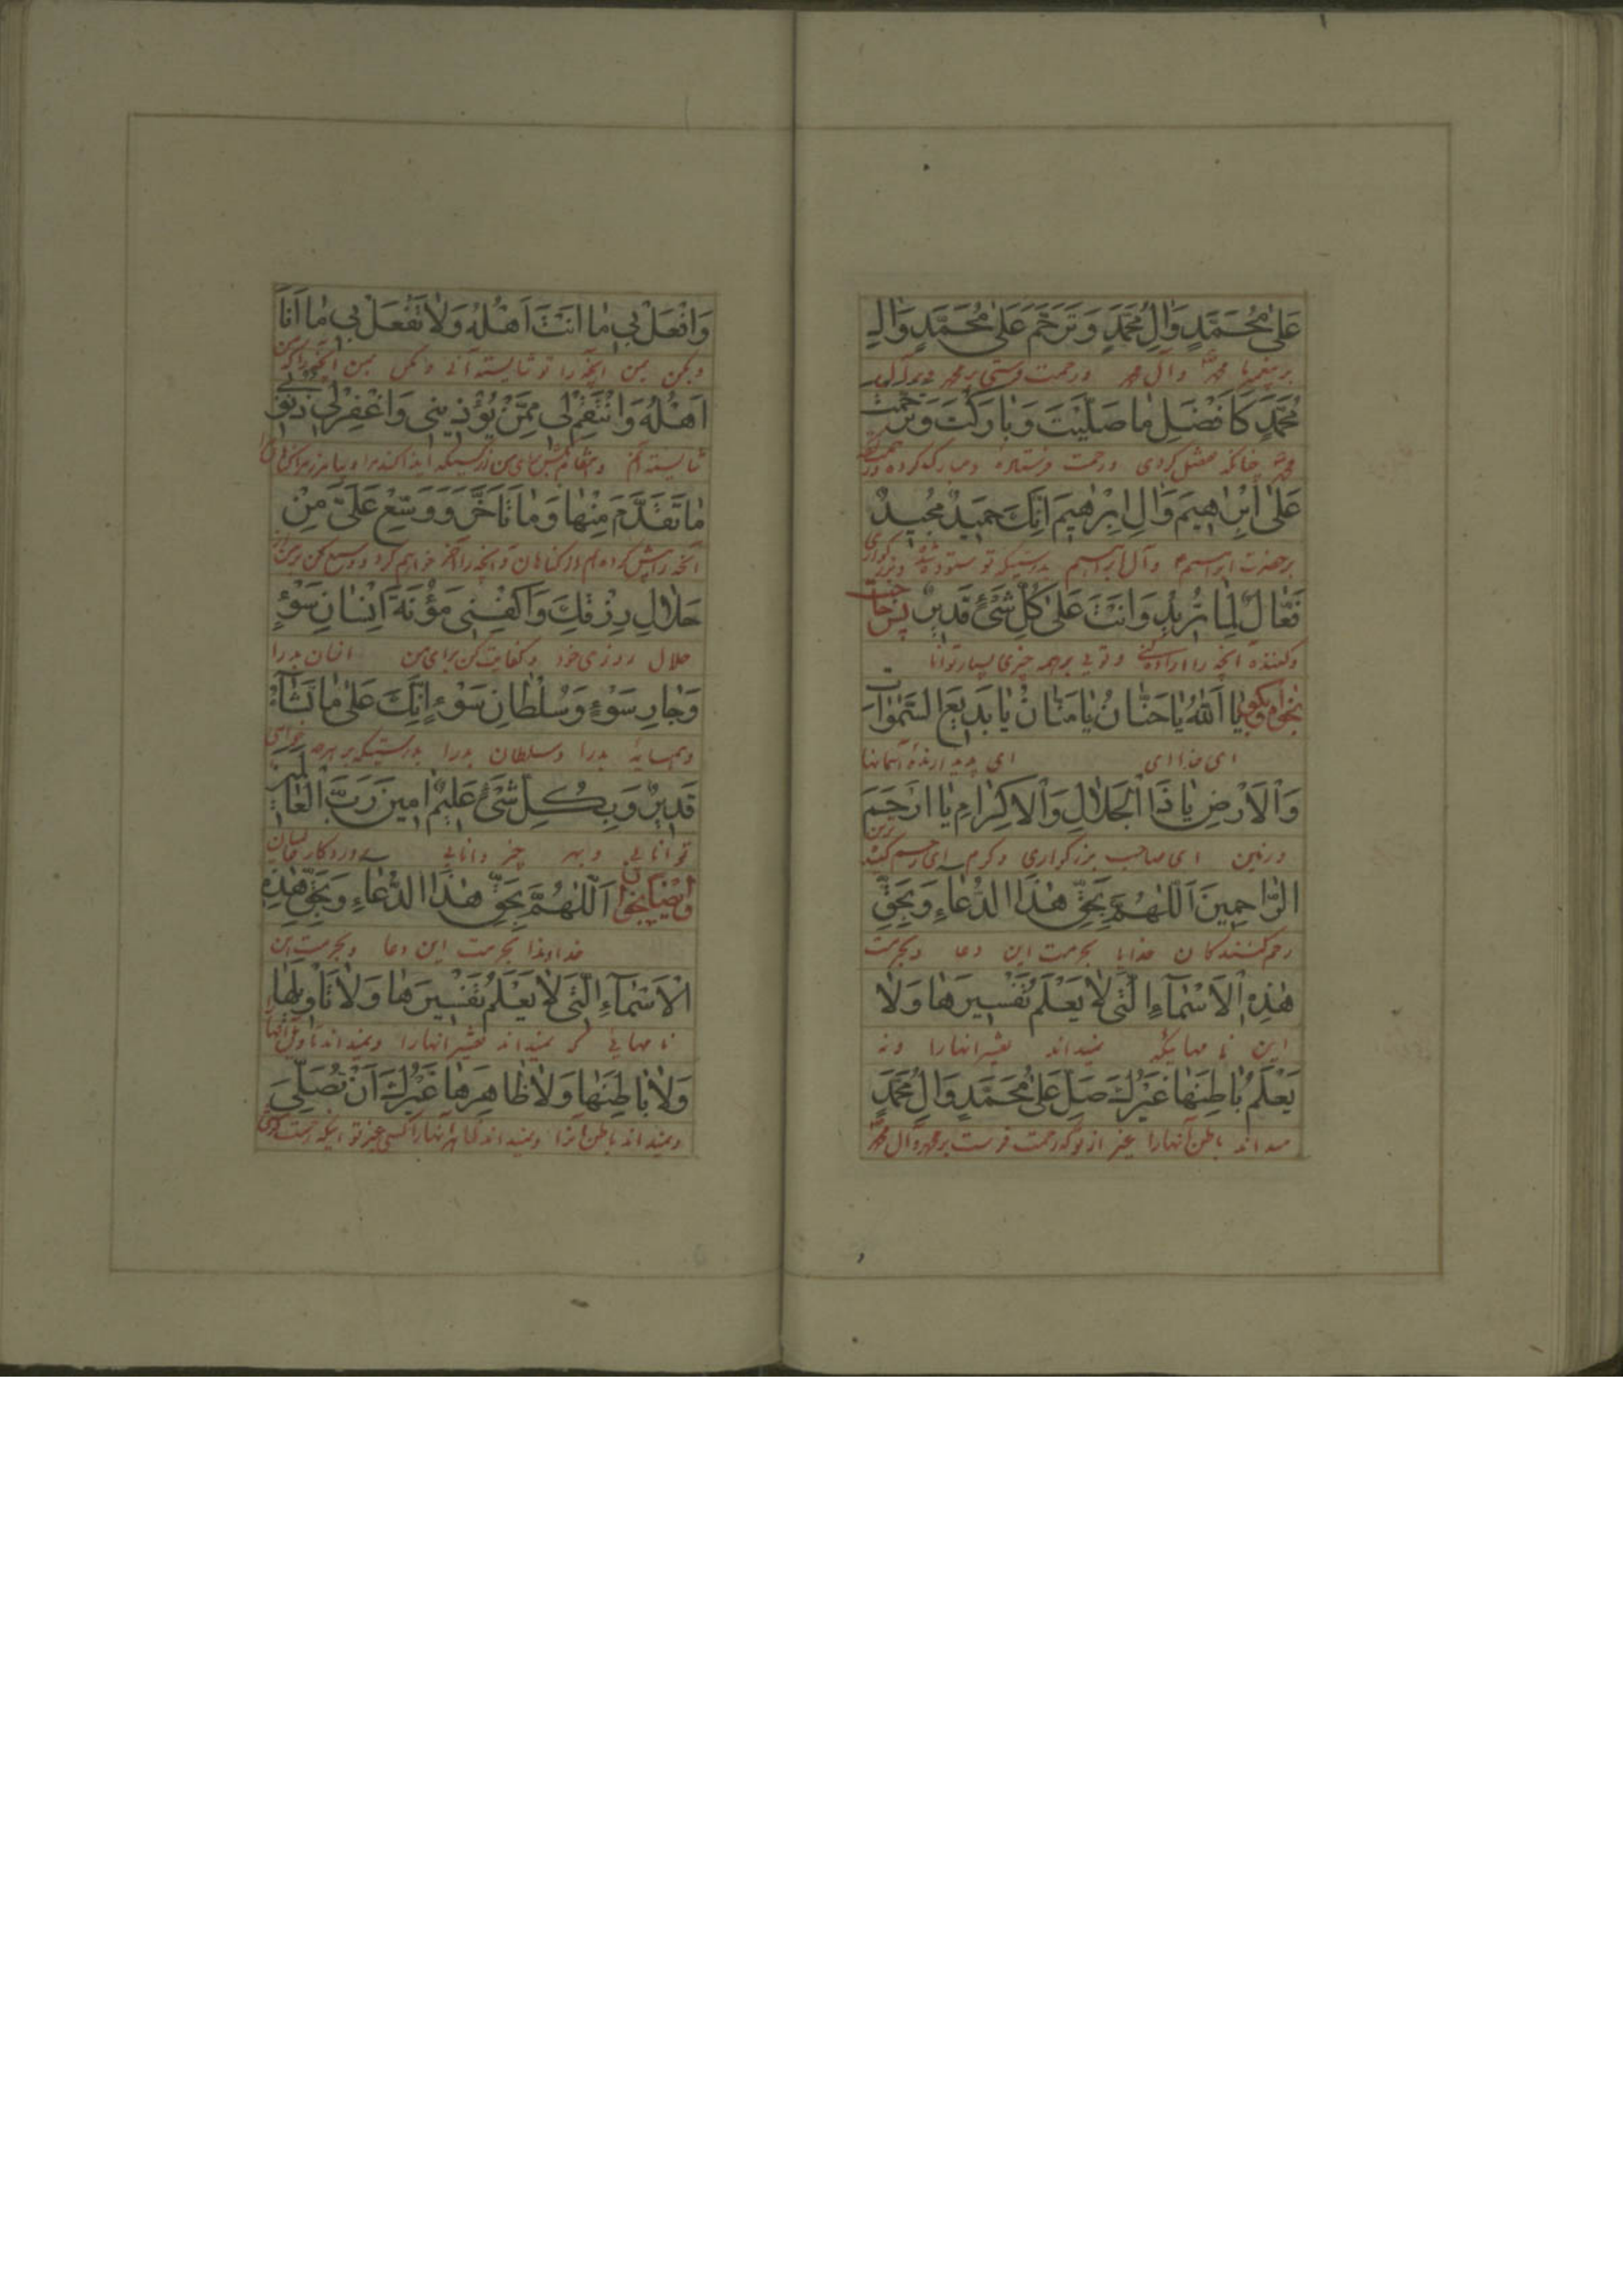 عَلىٰ مُحَمَّدٍ وَاٰلِ مُحَمَّدٍ وَتَرَحَّمْ عَلىٰ مُحَمَّدٍ وَاٰلِ
بر پیغمبر ما محمد و آل محمد و رحمت فرستی بر محمد و بر آل
مُحَمَّدٍ كَاَفْضَلِ مٰا صَلَّيْتَ وَبٰارَكْتَ وَتَرَحَّمْتَ
محمد چنانکه تفضل کردی و رحمت فرستادی و مبارک کردی
عَلىٰ اِبْرٰهِيمَ وَاٰلِ اِبْرٰهِيمَ اِنَّكَ حَمِيدٌ مَجِيدٌ
بر حضرت ابراهیم و آل ابراهیم بدرستیکه تو ستوده شده و بزرگواری
فَعّٰالٌ لِمٰا تُرِيدُ وَاَنْتَ عَلىٰ كُلِّ شَيْءٍ قَدِيرٌ پس حاجت
و کننده آنچه را اراده کنی و تویی بر همه چیزی بسیار توانا
بخواه و بگو يٰا اَللّٰهُ يٰا حَنّٰانُ يٰا مَنّٰانُ يٰا بَدِيعَ السَّمٰوٰاتِ
ای خدا ای ای پدید آرنده آسمانها
وَالْاَرْضِ يٰا ذَا الْجَلٰالِ وَالْاِكْرٰامِ يٰا اَرْحَمَ
و زمین ای صاحب بزرگواری و کرم ای رحم کننده ترین
الرّٰاحِمِينَ اَللّٰهُمَّ بِحَقِّ هٰذَا الدُّعٰاءِ وَبِحَقِّ
رحم کنندگان خدایا بحرمت این دعا و بحرمت
هٰذِهِ الْاَسْمٰاءِ الَّتِي لٰا يَعْلَمُ تَفْسِيرَهٰا وَلٰا
این نامهاییکه نمیداند تفسیر انهارا و نه
يَعْلَمُ بٰاطِنَهٰا غَيْرُكَ صَلِّ عَلىٰ مُحَمَّدٍ وَاٰلِ مُحَمَّدٍ
میداند باطن آنهارا غیر از تو که رحمت فرست بر محمد و آل محمد
وَافْعَلْ بِي مٰا اَنْتَ اَهْلُهُ وَلٰا تَفْعَلْ بِي مٰا اَنَا
و بکن بمن آنچه را تو شایسته آنی و مکن بمن آنچه را که من
اَهْلُهُ وَانْتَقِمْ لِي مِمَّنْ يُؤْذِينِي وَاغْفِرْ لِي ذُنُوبِي
شایسته آنم و انتقام بکش برای من از کسیکه ایذا کند مرا و بیامرز مرا
مٰا تَقَدَّمَ مِنْهٰا وَمٰا تَاَخَّرَ وَوَسِّعْ عَلَيَّ مِنْ
آنچه را پیش کرده ام از گناهان و آنچه را آخر خواهم کرد و وسیع کن بر من
حَلٰالِ رِزْقِكَ وَاكْفِنِي مَؤُنَةَ اِنْسٰانِ سَوْءٍ
حلال روزی خود و کفایت کن برای من انسان بد را
وَجٰارِ سَوْءٍ وَسُلْطٰانِ سَوْءٍ اِنَّكَ عَلىٰ مٰا تَشٰاءُ
و همسایه بد را و سلطان بد را بدرستیکه بر هرچه خواهی
قَدِيرٌ وَبِكُلِّ شَيْءٍ عَلِيمٌ اٰمِينَ رَبَّ الْعٰالَمِينَ
توانایی و بهر چیز دانایی پروردگار عالمیان
وایضا بخوان اَللّٰهُمَّ بِحَقِّ هٰذَا الدُّعٰاءِ وَبِحَقِّ هٰذِهِ
خداوندا بحرمت این دعا و بحرمت این
الْاَسْمٰاءِ الَّتِي لٰا يَعْلَمُ تَفْسِيرَهٰا وَلٰا تَاْوِيلَهٰا
نامهایی که نمیداند تفسیر انهارا و نمیداند تاویل انها
وَلٰا بٰاطِنَهٰا وَلٰا ظٰاهِرَهٰا غَيْرُكَ اَنْ تُصَلِّيَ
و نمیداند باطن آنرا و نمیداند ظاهر انهارا کسی غیر تو اینکه رحمت